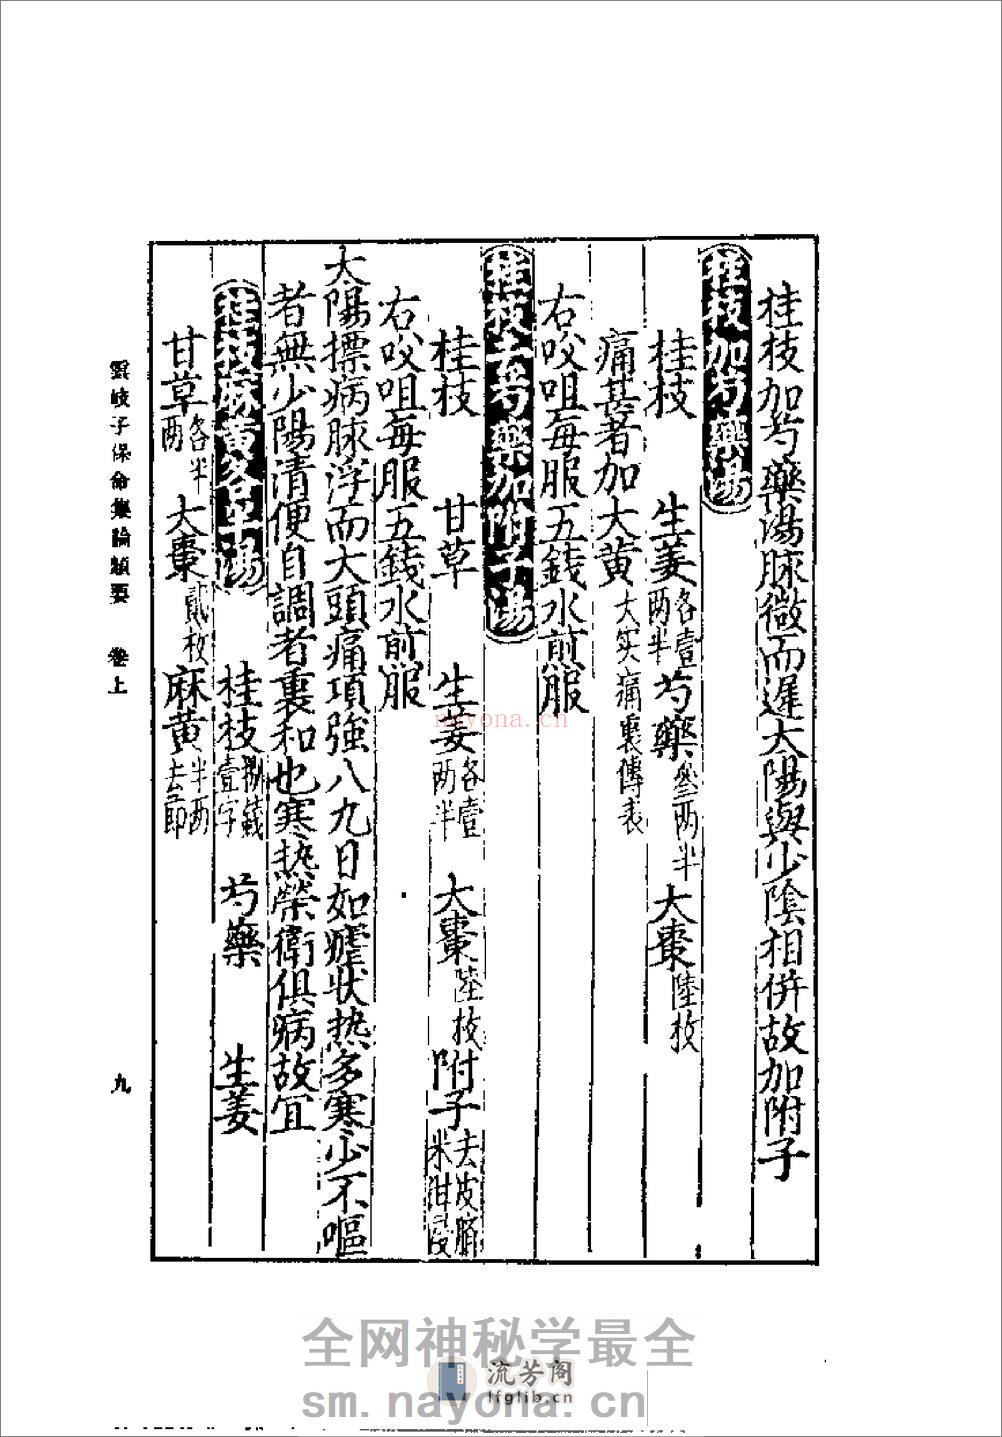 桂枝加芍藥湯脉微而遲太陽與少陰相併故加附子
桂枝加芍藥湯
桂枝 生姜各壹两半芍藥叁两半大棗陸枚
痛甚者加大黄大实痛裏傳表
右㕮咀每服五錢水煎服
桂枝去芍藥加附子湯
桂枝 甘草 生姜各壹两半 大棗陸枚附子去皮臍米泔浸
右㕮咀每服五錢水煎服
太陽摽病脉浮而大頭痛項強八九日如瘧状热多寒少不嘔
者無少陽清便自調者裏和也寒热榮衛俱病故宜
桂枝麻黄各半湯 桂枝捌錢壹字 芍藥 生姜
甘草各半两 大棗貳枚麻黄半两去節
雲岐子保命集論類要 卷上
九
nayona.cn
全网神秘学最全
流芳阁
lfglib.cn
sm.nayona.cn